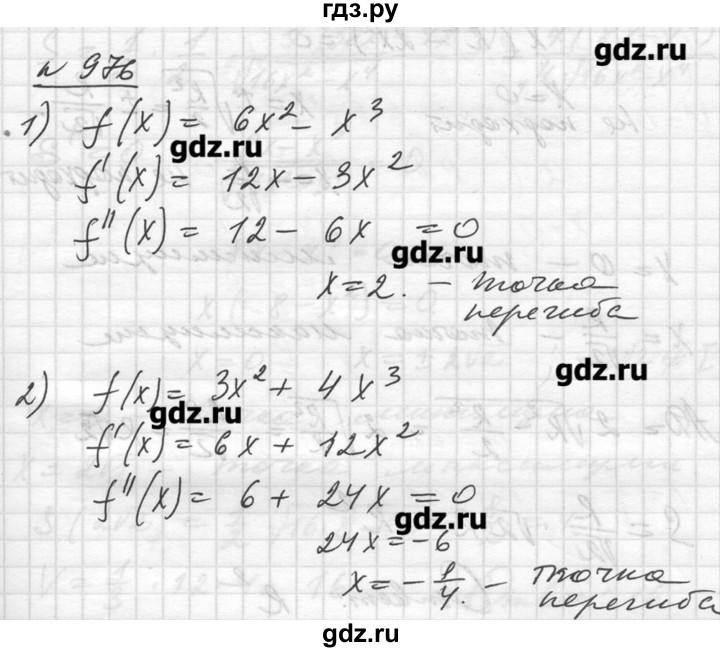 гдз.ру
gdz.ru
n 976
1) f(x) = 6x² - x³
gdz.ru
f'(x) = 12x - 3x²
f''(x) = 12 - 6x = 0
gdz.ru
x = 2. - точка
перегиба
gdz.ru
2) f(x) = 3x² + 4x³
gdz.ru
f'(x) = 6x + 12x²
f''(x) = 6 + 24x = 0
gdz.ru
24x = -6
x = -1/4. - точка
перегиба
gdz.ru